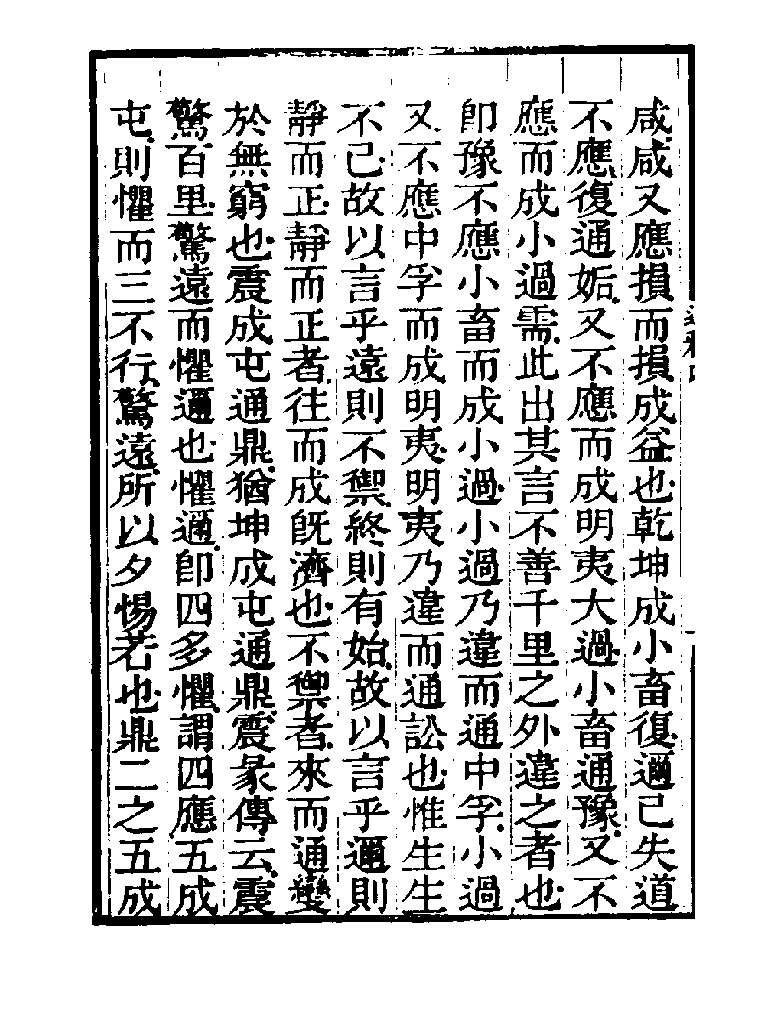 咸咸又應損而損成益也乾坤成小畜復邇己失道
不應復通姤又不應而成明夷大過小畜通豫又不
應而成小過需此出其言不善千里之外違之者也
卽豫不應小畜而成小過小過乃違而通中孚小過
又不應中孚而成明夷明夷乃違而通訟也惟生生
不已故以言乎遠則不禦終則有始故以言乎邇則
靜而正靜而正者往而成旣濟也不禦者來而通變
於無窮也震成屯通鼎猶坤成屯通鼎震彖傳云震
驚百里驚遠而懼邇也懼邇卽四多懼謂四應五成
屯則懼而三不行驚遠所以夕惕若也鼎二之五成